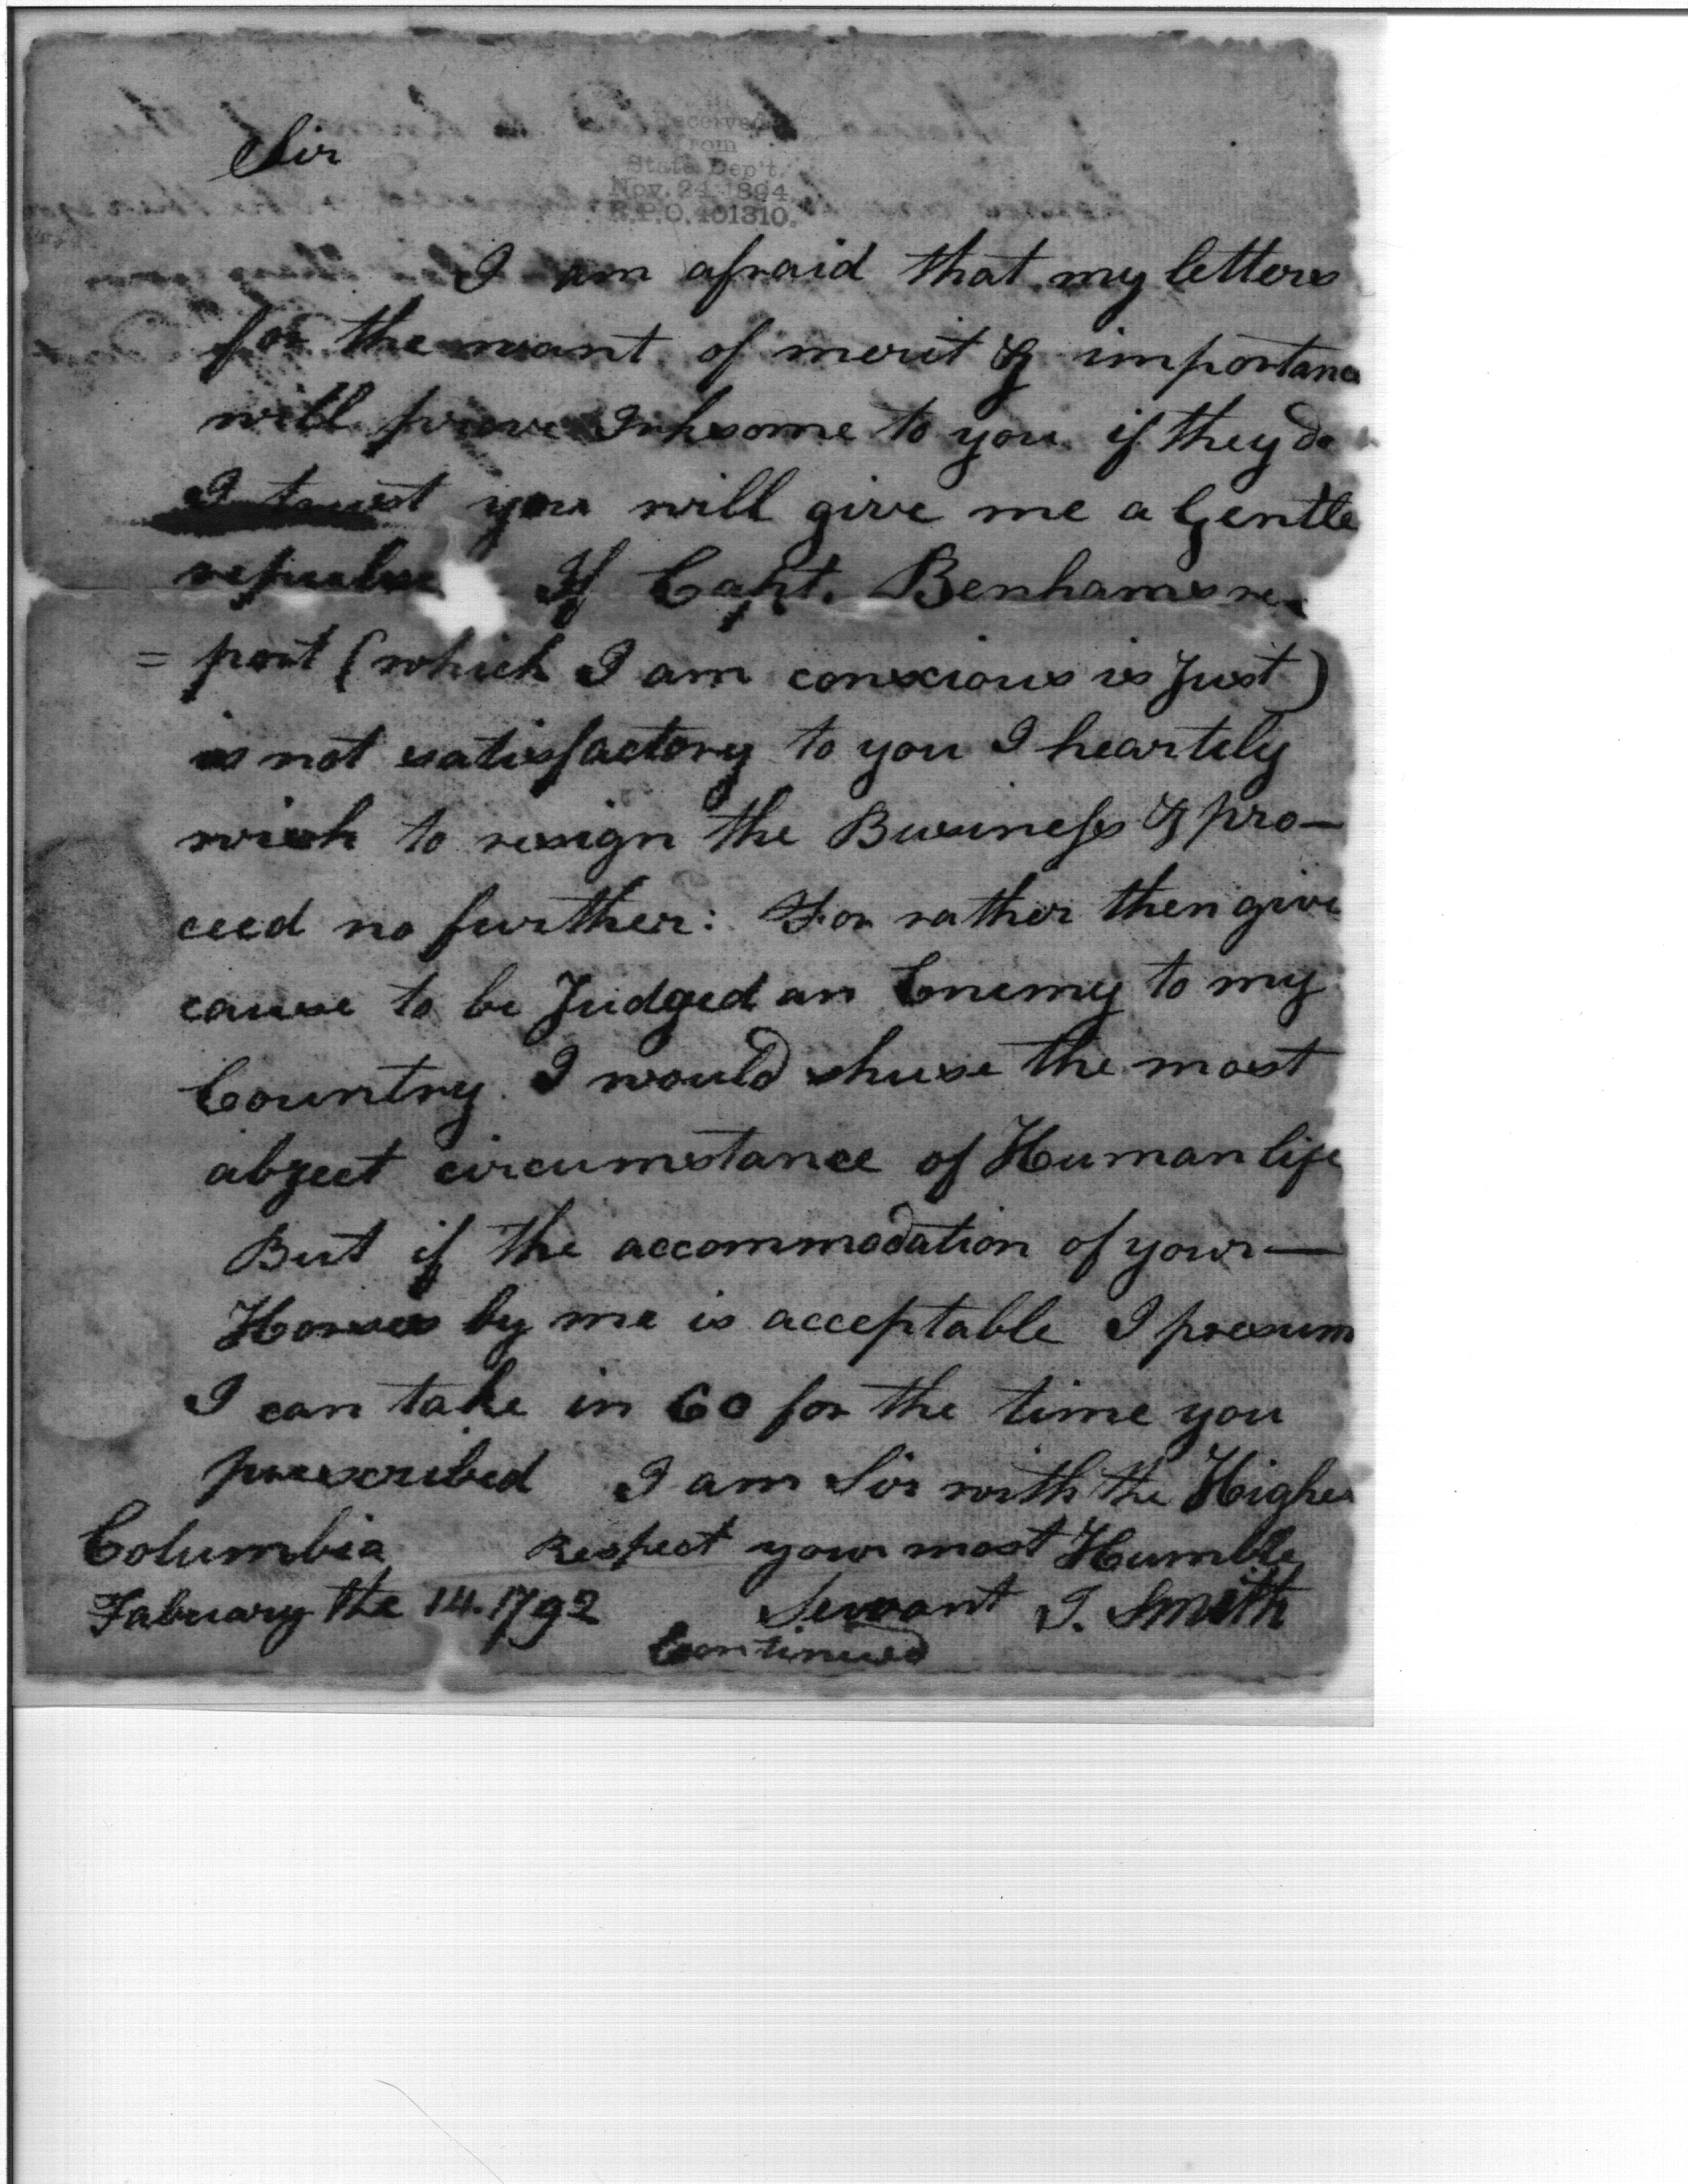 Sir
Received
from
State Dep't.
Nov. 24 1894
R.P.O. 401310.
I am afraid that my letters
for the want of merit & importanc
will prove Irksome to you if they do
I trust you will give me a Gentle
repulse If Capt. Benhams re-
= port (which I am conscious is Just)
is not satisfactory to you I heartily
wish to resign the Business & pro—
ceed no further: For rather then give
cause to be Judged an Enemy to my
Country. I would chuse the most
abject circumstance of Human life
But if the accommodation of your—
Horses by me is acceptable I presum
I can take in 60 for the time you
prescribed I am Sir with the Highes
Columbia Respect your most Humble
Fabruary the 14. 1792 Servant I. Smith
Continued